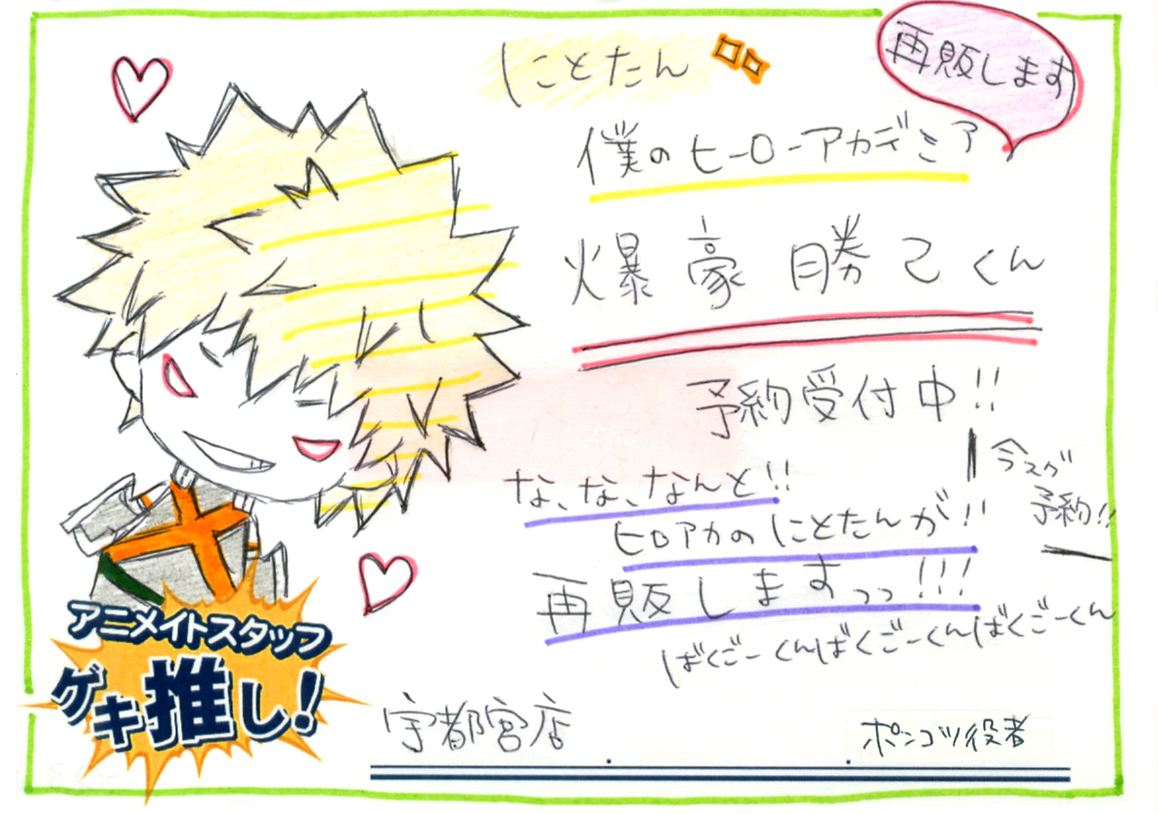 にとたん
再販します
僕のヒーローアカデミア
爆豪勝己くん
予約受付中!!
今スグ
予約!!
な、な、なんと!!
ヒロアカのにとたんが!!
再販しますっっ!!!
ばくごーくんばくごーくんばくごーくん
アニメイトスタッフ
ゲキ推し!
宇都宮店
ポンコツ役者